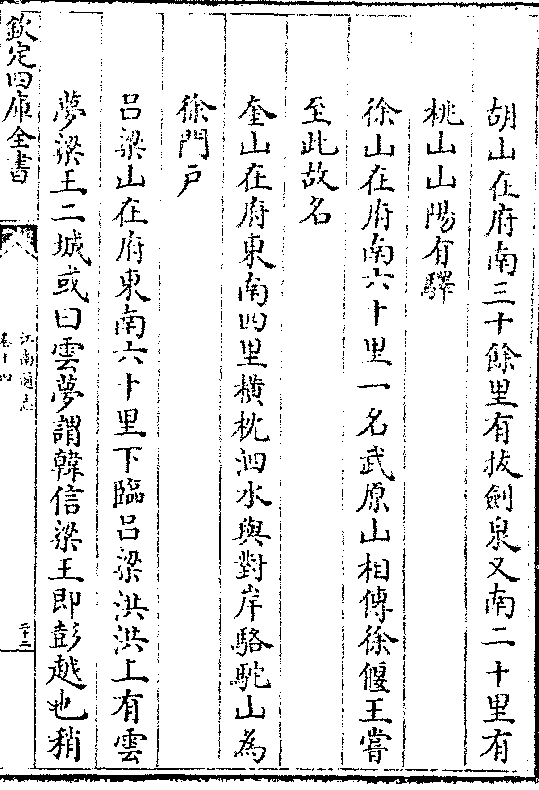 胡山在府南三十餘里有拔劍泉又南二十里有
桃山山陽有驛
徐山在府南六十里一名武原山相傳徐偃王嘗
至此故名
奎山在府東南四里橫枕泗水與對岸駱駝山為
徐門户
呂梁山在府東南六十里下臨吕梁洪洪上有雲
夢梁王二城或曰雲夢謂韓信梁王即彭越也稍
欽定四庫全書
江南通志
卷十四
二十二